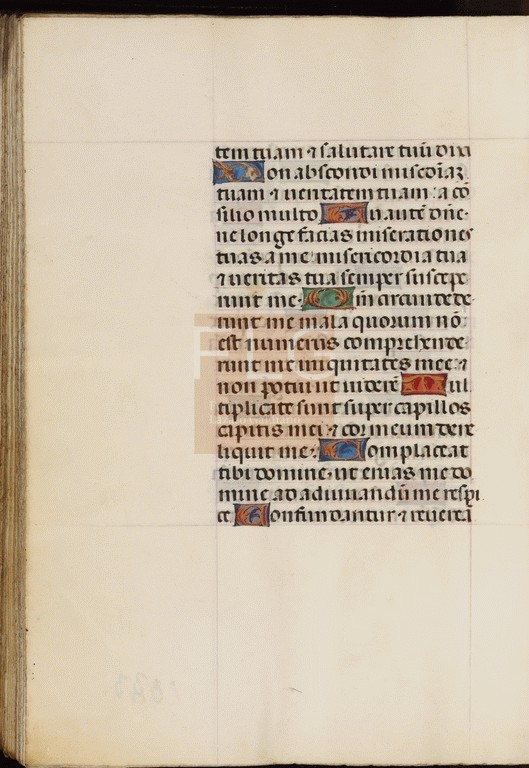 tem tuam ⁊ salutare tuū dixi
Non abscondi misc̄dīaꝫ
tuam ⁊ ueritatem tuam : a cō
silio multo Tu autē dn̄e ·
ne longe facias miserationes
tuas a me : misericordia tua
⁊ ueritas tua semper suscepe
runt me · Qm̄ circumdede ·
runt me mala quorum nō
est numerus comprehende ·
runt me iniquitates mee · ⁊
non potui ut viderē Mul
tiplicate sunt super capillos
capitis mei · ⁊ cor meum dere
liquit me · Complaceat
tibi domine · ut eruas me do
mine ad adiuuandū me respi
ce Confundantur ⁊ reuereā